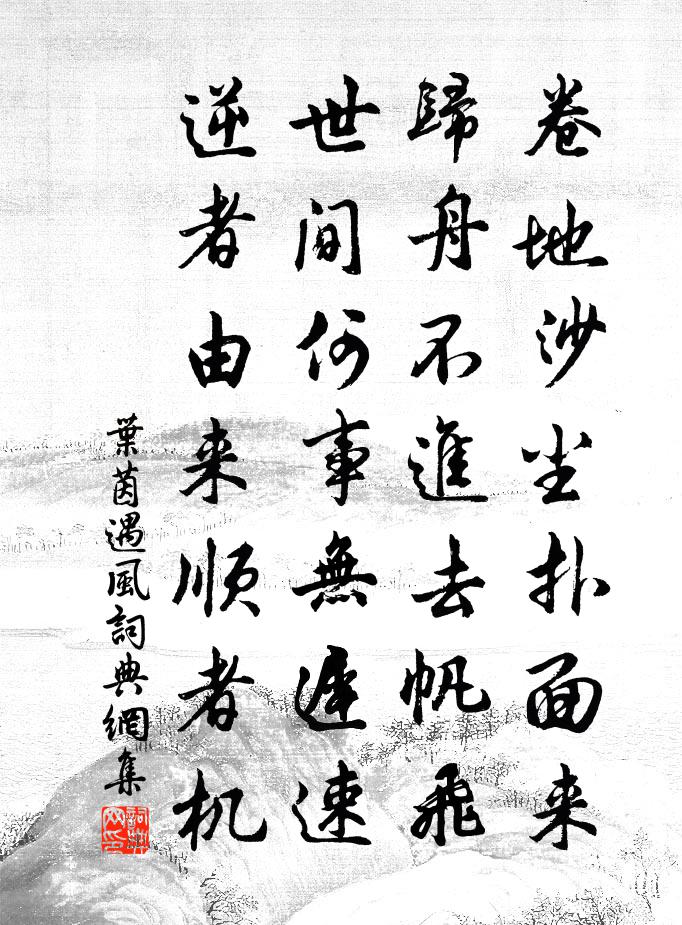 卷地沙尘扑面来
歸舟不進去帆飛
世间何事無遲速
逆者由来顺者机
葉茵遇風詞典網集
詞典网印